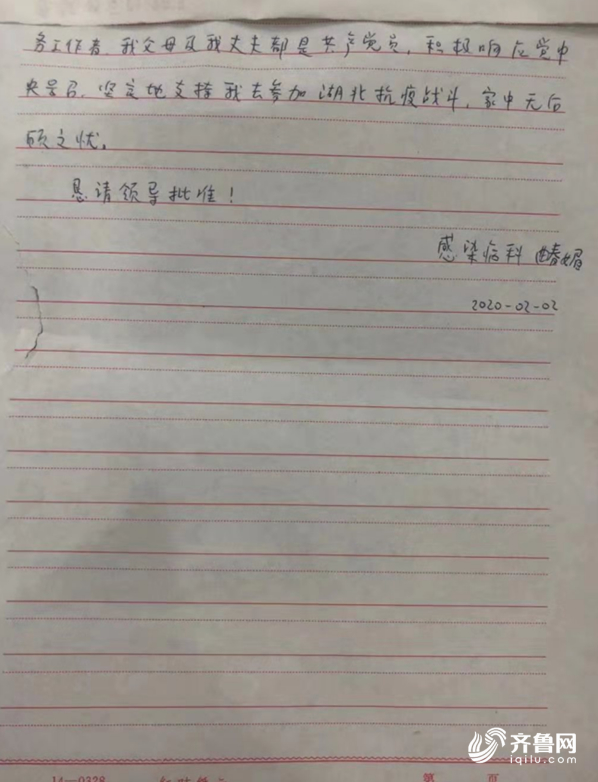 务工作者，我父母及我丈夫都是共产党员，积极响应党中
央号召，坚定地支持我去参加湖北抗疫战斗，家中无后
顾之忧。
恳请领导批准！
感染病科 曲春媚
2020-02-02
14—0328
第 页
齐鲁网
iqilu.com